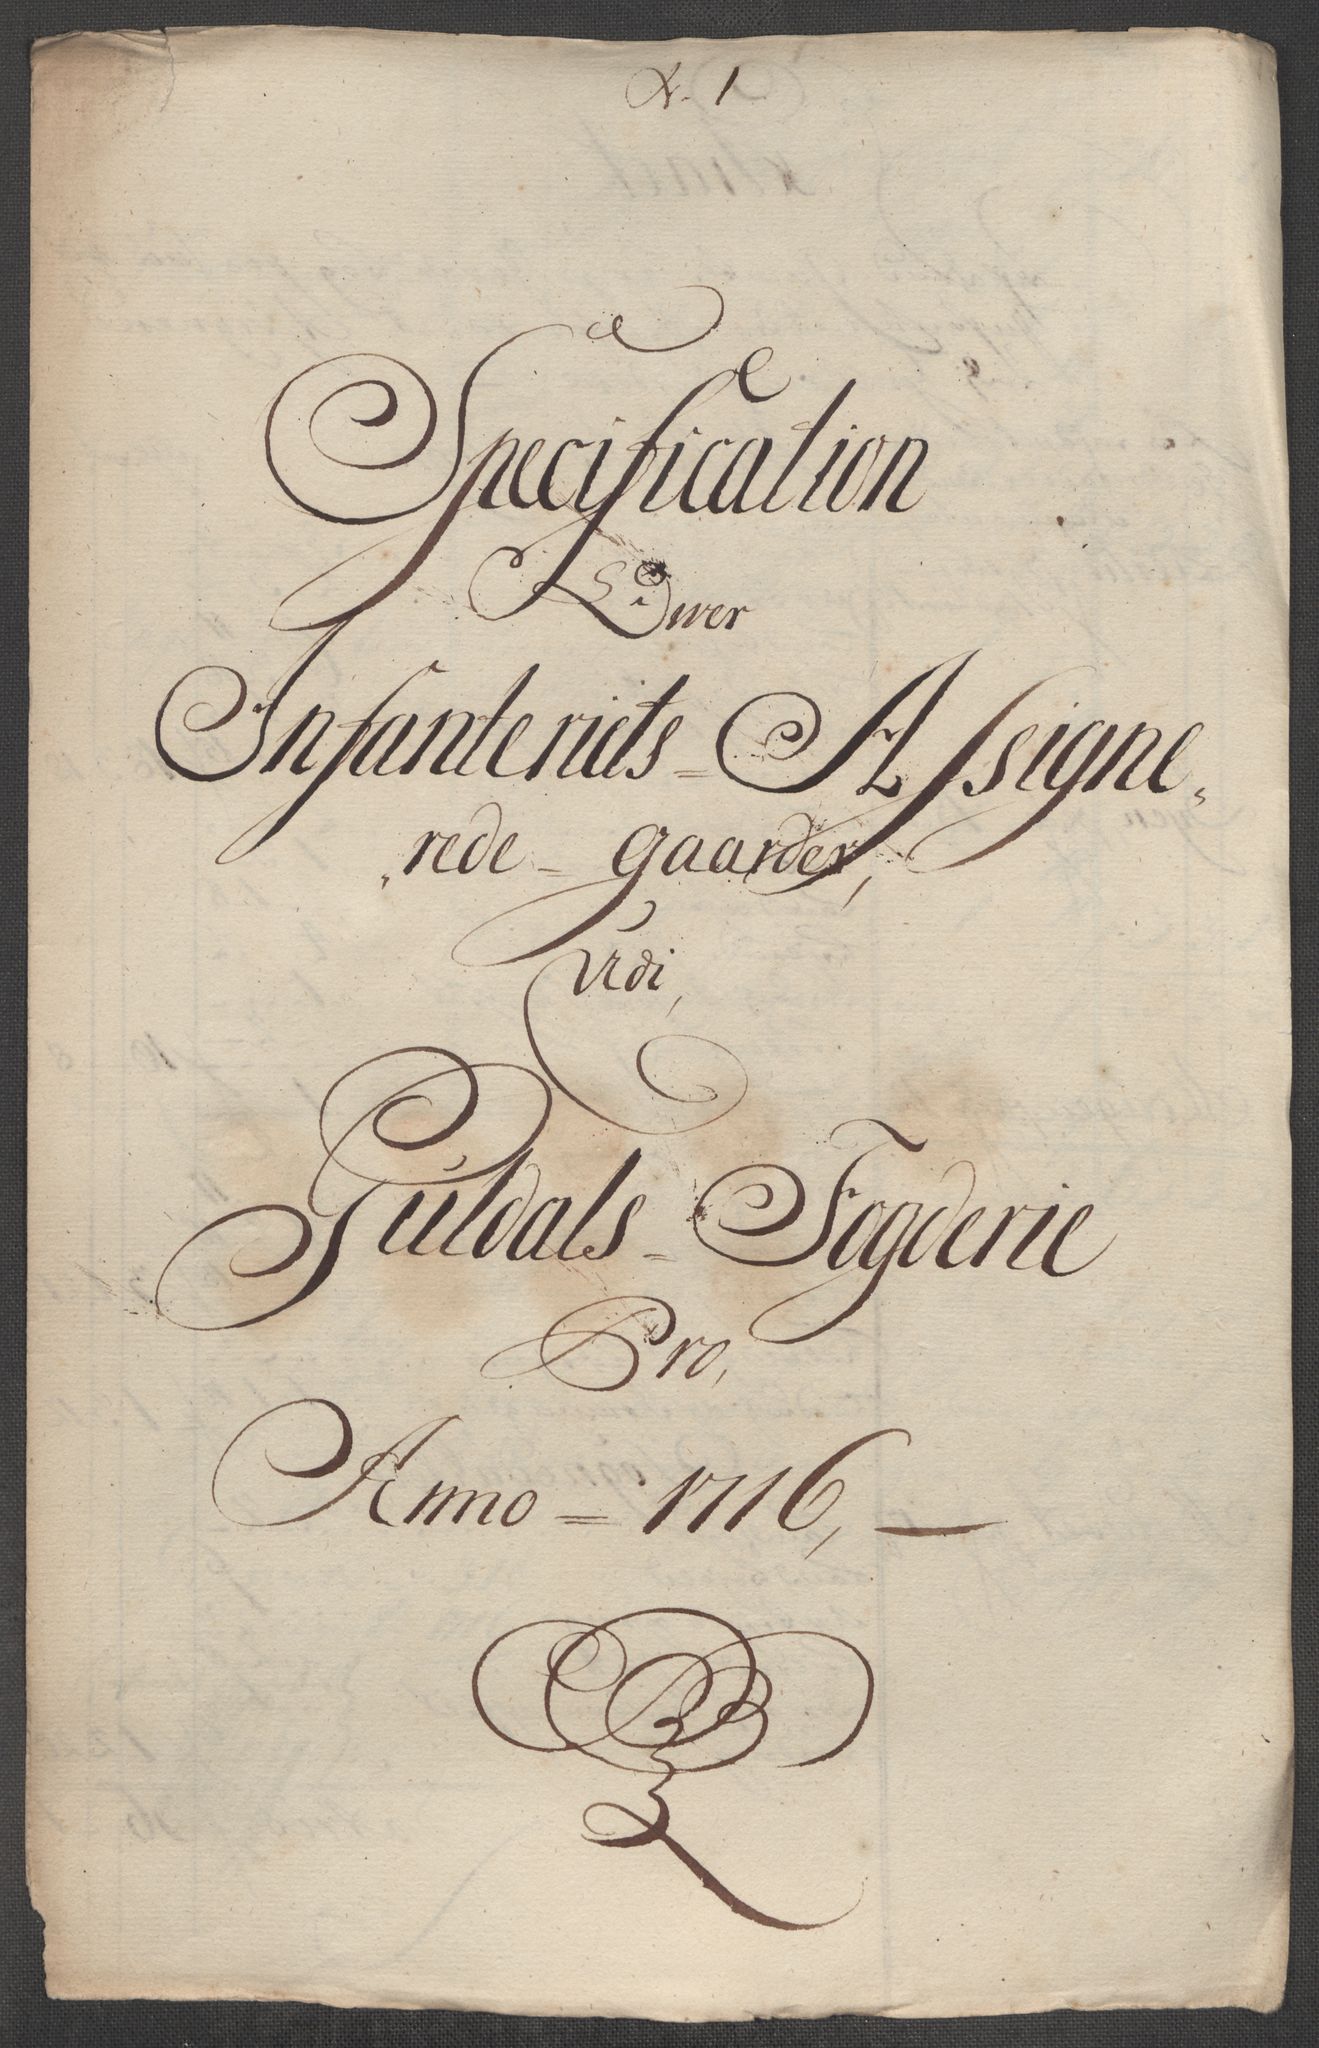 N. 1
Specification
Over
Infanteriets = Assigne,
,rede - gaarder,
Udi,
Guldals - Fogderie
Pro,
Anno = 1716, —